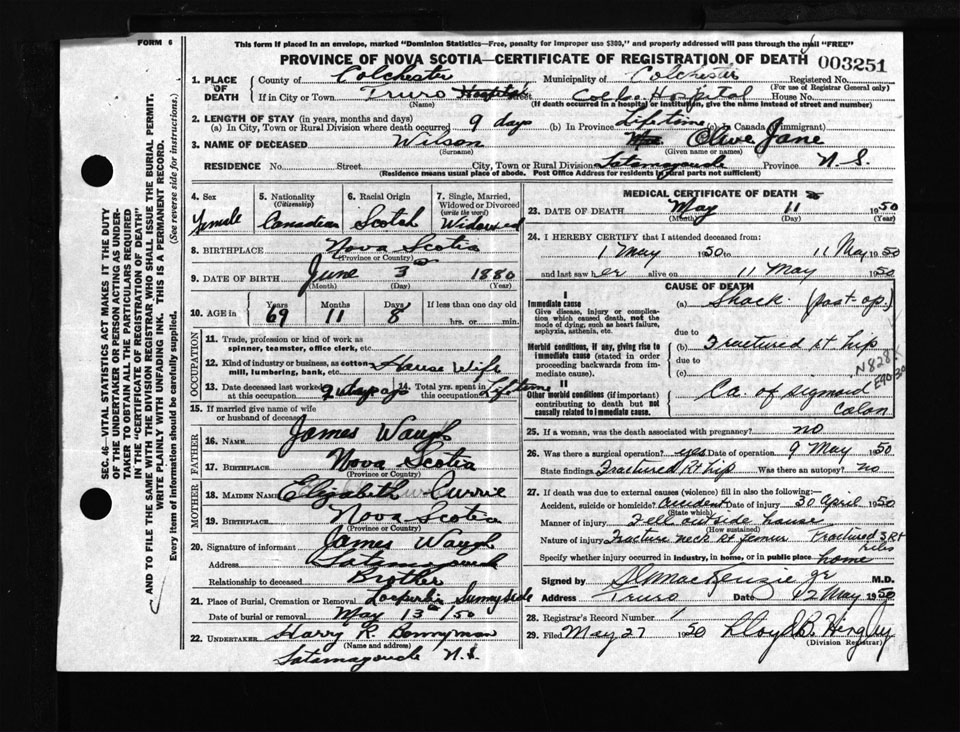 FORM 6
This form if placed in an envelope, marked "Dominion Statistics—Free, penalty for improper use $300," and properly addressed will pass through the mail "FREE"
PROVINCE OF NOVA SCOTIA—CERTIFICATE OF REGISTRATION OF DEATH
003251
1. PLACE OF DEATH
County of Colchester Municipality of Colchester Registered No.
(For use of Registrar General only)
If in City or Town Truro Hospital Street Colche. Hospital House No.
(Name) (If death occurred in a hospital or institution, give the name instead of street and number)
2. LENGTH OF STAY (in years, months and days)
(a) In City, Town or Rural Division where death occurred 9 days (b) In Province Lifetime (c) In Canada (if immigrant)
3. NAME OF DECEASED Wilson Olive Jane
(Surname) (Given name or names)
RESIDENCE No. Street City, Town or Rural Division Tatamagouche Province N.S.
(Residence means usual place of abode. Post Office Address for residents in rural parts not sufficient)
4. Sex Female
5. Nationality (Citizenship) Canadian
6. Racial Origin Scotch
7. Single, Married, Widowed or Divorced (write the word) Widowed
8. BIRTHPLACE Nova Scotia
(Province or Country)
9. DATE OF BIRTH June 3 1880
(Month) (Day) (Year)
10. AGE in Years 69 Months 11 Days 8 If less than one day old
hrs. or min.
OCCUPATION
11. Trade, profession or kind of work as spinner, teamster, office clerk, etc.
12. Kind of industry or business, as cotton mill, lumbering, bank, etc. House Wife
13. Date deceased last worked at this occupation 14. Total yrs. spent in this occupation Lifetime
15. If married give name of wife or husband of deceased
FATHER
16. NAME James Waugh
17. BIRTHPLACE Nova Scotia
(Province or Country)
MOTHER
18. MAIDEN NAME Elizabeth Currie
19. BIRTHPLACE Nova Scotia
(Province or Country)
20. Signature of informant James Waugh
Address Tatamagouche
Relationship to deceased Brother
21. Place of Burial, Cremation or Removal Sunnyside
Date of burial or removal May 13th/50
22. UNDERTAKER Harry R. Bonnyman
(Name and address)
Tatamagouche N.S.
MEDICAL CERTIFICATE OF DEATH
23. DATE OF DEATH May 11 1950
(Month) (Day) (Year)
24. I HEREBY CERTIFY that I attended deceased from:
1 May 1950 to 11 May 1950
and last saw her alive on 11 May 1950
CAUSE OF DEATH
I
Immediate cause
Give disease, injury or complication which caused death, not the mode of dying, such as heart failure, asphyxia, asthenia, etc.
(a) Shock. (post-op.)
due to
Morbid conditions, if any, giving rise to immediate cause (stated in order proceeding backwards from immediate cause).
(b) Fractured Rt hip
due to
(c)
N828X
E90
II
Other morbid conditions (if important) contributing to death but not causally related to immediate cause.
Ca. of sigmoid colon
25. If a woman, was the death associated with pregnancy? no
26. Was there a surgical operation? yes Date of operation 9 May 1950
State findings Fractured Rt hip Was there an autopsy? no
27. If death was due to external causes (violence) fill in also the following:—
Accident, suicide or homicide? accident Date of injury 30 April 1950
(State which)
Manner of injury Fell outside house
(How sustained)
Nature of injury Fracture neck Rt femur Fractured 3 Rt ribs
Specify whether injury occurred in industry, in home, or in public place home
Signed by MacKenzie jr M.D.
Address Truro Date 12 May 1950
28. Registrar's Record Number 1
29. Filed May 27 1950 Lloyd B. Hingley
(Division Registrar)
SEC. 46—VITAL STATISTICS ACT MAKES IT THE DUTY
OF THE UNDERTAKER OR PERSON ACTING AS UNDER-
TAKER TO OBTAIN ALL THE PARTICULARS REQUIRED
IN THE "CERTIFICATE OF REGISTRATION OF DEATH"
AND TO FILE THE SAME WITH THE DIVISION REGISTRAR WHO SHALL ISSUE THE BURIAL PERMIT.
WRITE PLAINLY WITH UNFADING INK. THIS IS A PERMANENT RECORD.
Every item of information should be carefully supplied. (See reverse side for instructions.)